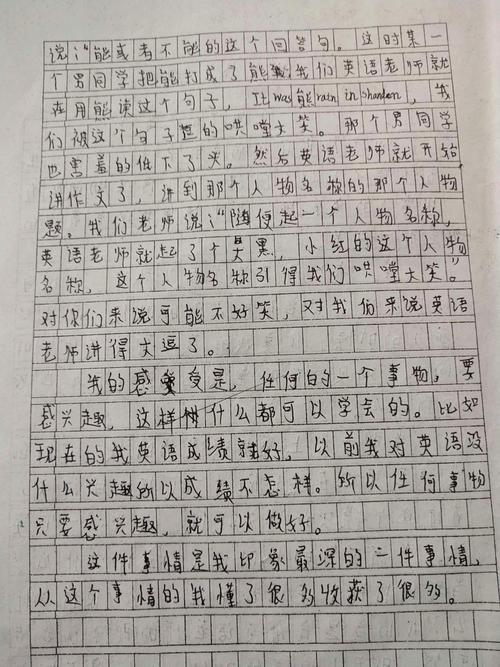 说："能或者不能的这个回答句。这时某一
个男同学把能打成了熊，我们英语老师就
在用熊读这个句子，It was熊rain in shandon，我
们被这个句子逗的哄嘡大笑。那个男同学
也害羞的低下了头。然后英语老师就开始
讲作文了，讲到那个人物名称的那个人物
题。我们老师说："随便起一个人物名称，
英语老师就起了个臭黑，小红的这个人物
名称，这个人物名称引得我们哄嘡大笑。"
对你们来说可能不好笑，又对我们来说英语
老师讲得太逗了。
我的感受是，任何的一个事物，要
感兴趣，这样什么都可以学会的。比如
现在的我英语成绩就好，以前我对英语没
什么兴趣所以成绩不怎样。所以任何事物
只要感兴趣，就可以做好。
这件事情是我印象最深的一件事情，
从这个事情的我懂了很多收获了很多。